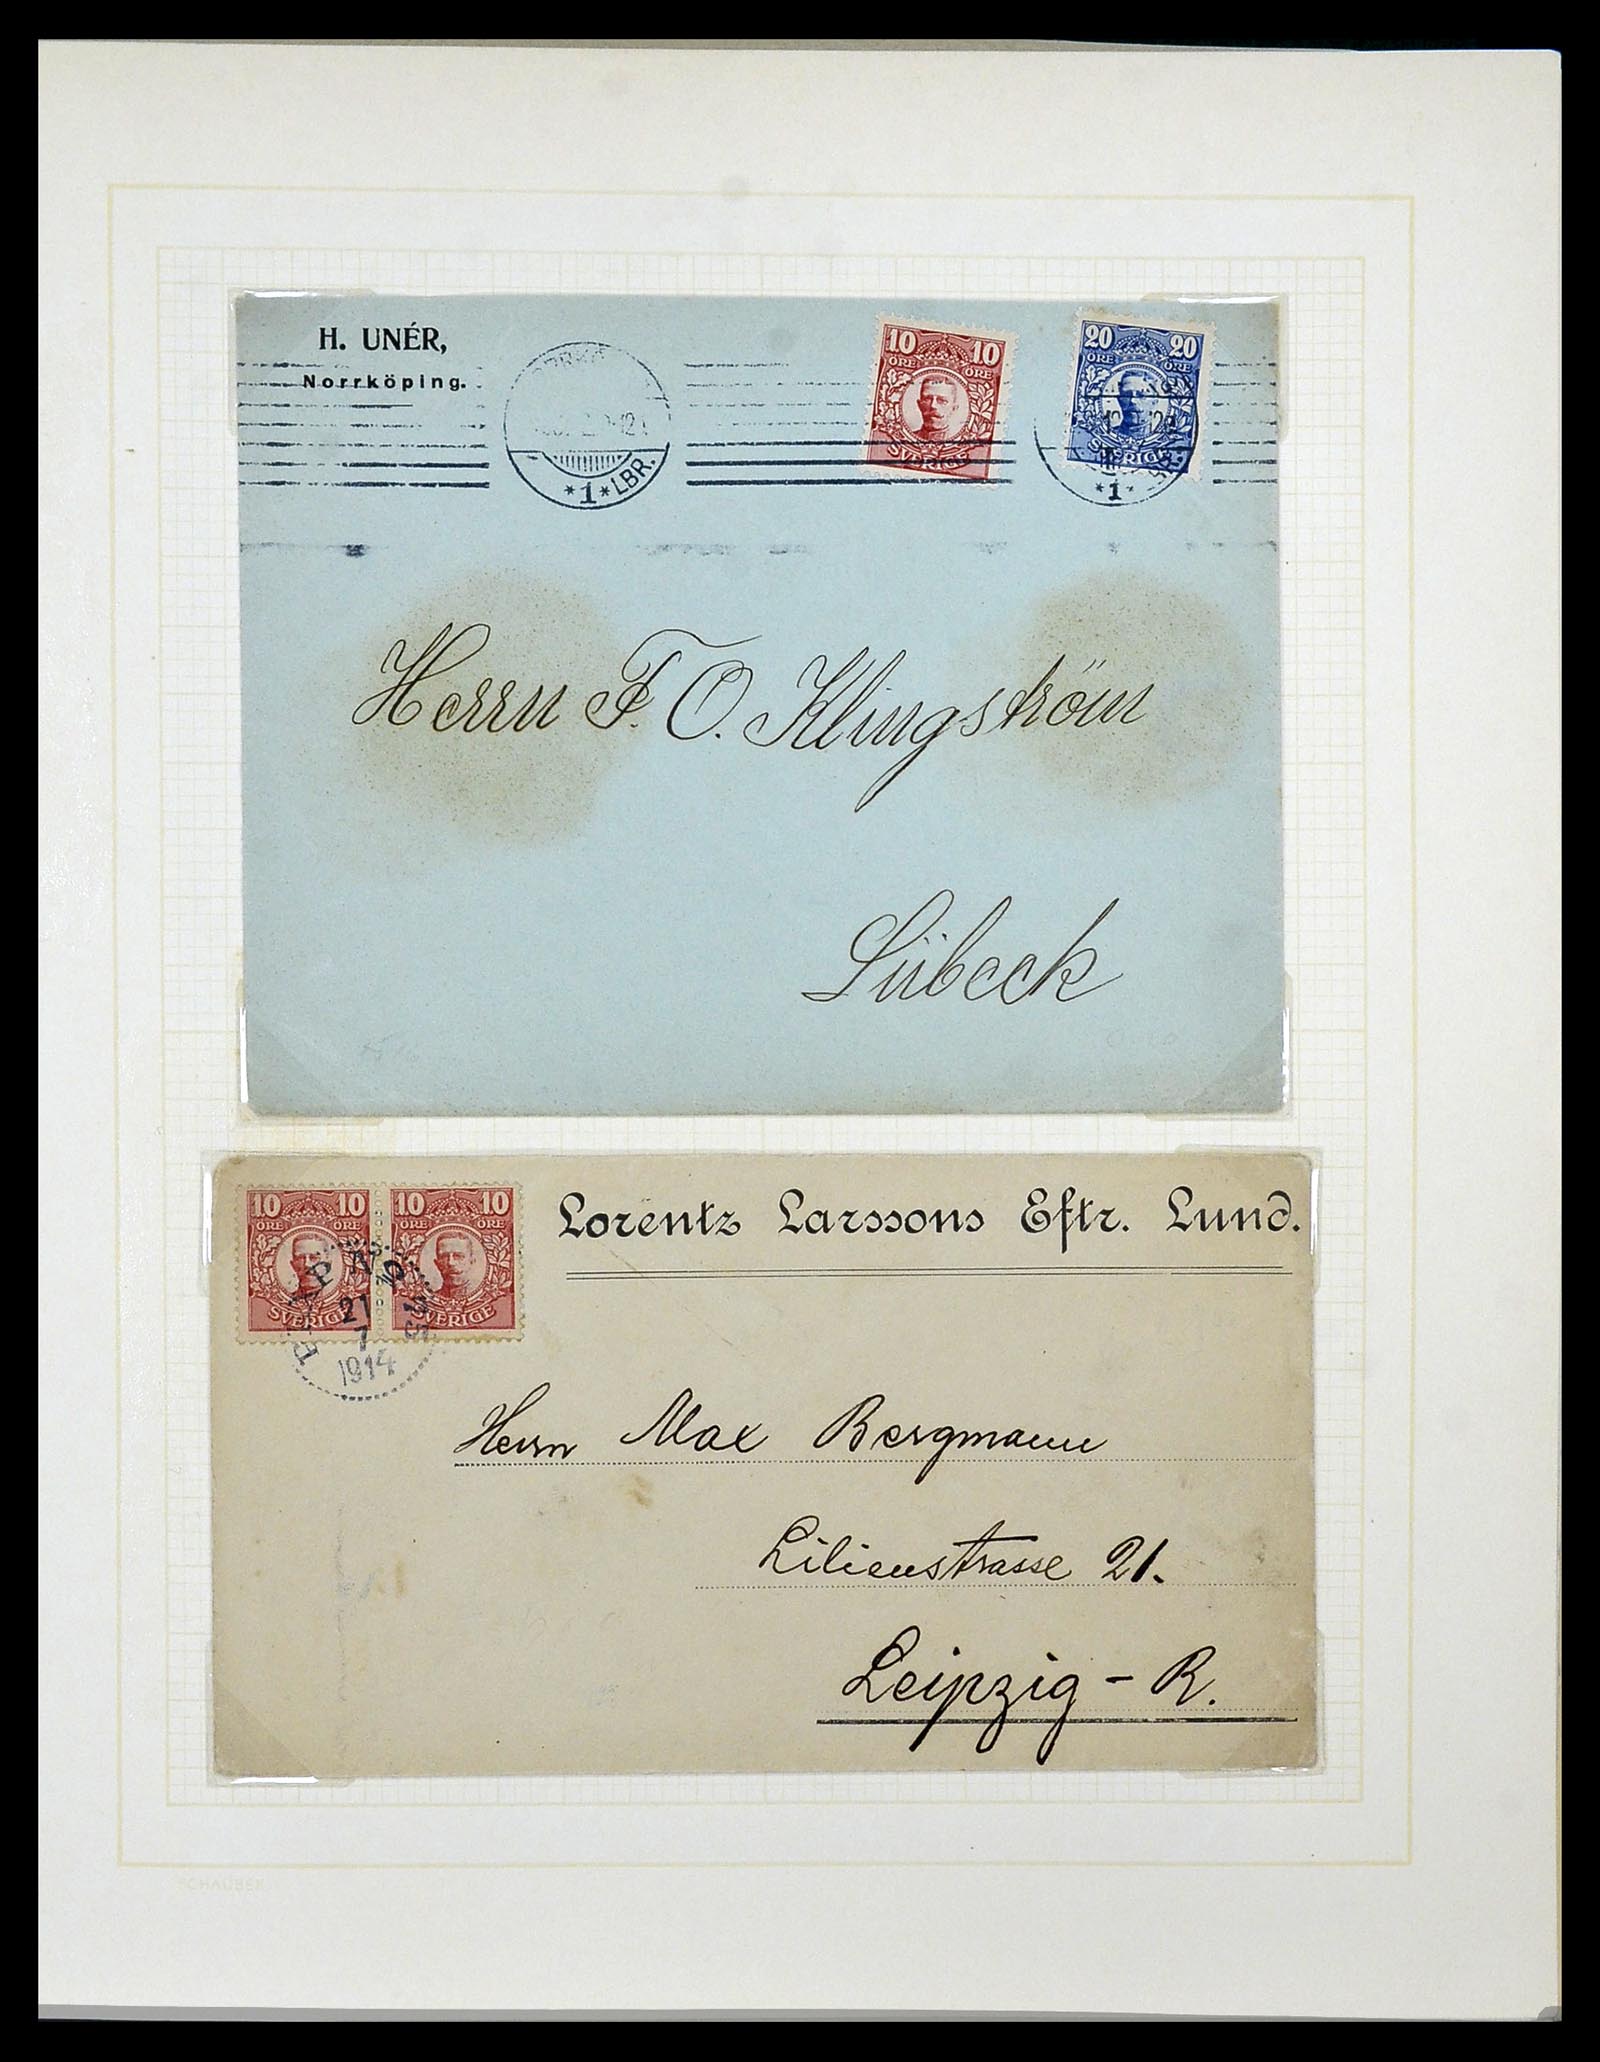 H. UNÉR,
Norrköping.
*1*LBR.
10 10
ÖRE ÖRE
SVERIGE
20 20
ÖRE ÖRE
SVERIGE
*1*
Herrn F. O. Klingström
Lübeck
10 10 10 10
ÖRE ÖRE ÖRE ÖRE
SVERIGE SVERIGE
21
7
1914
Lorentz Larssons Eftr. Lund.
Herrn Max Bergmann
Lilienstrasse 21.
Leipzig - R.
SCHAUBEK